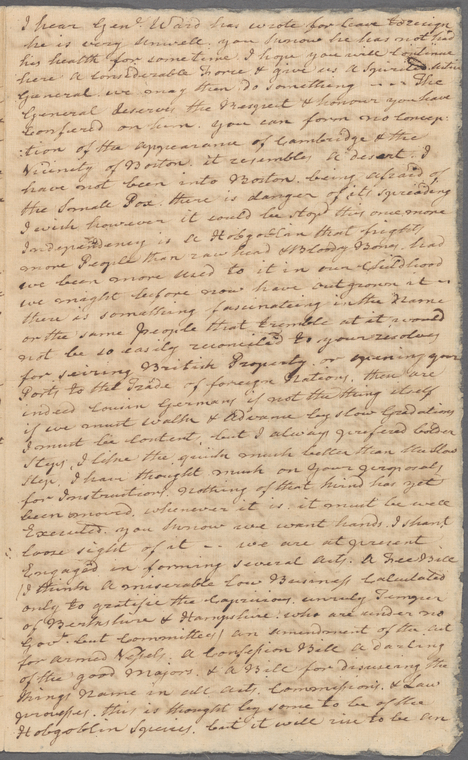 I hear Genl. Ward has wrote for leave to resign
he is very unwell. you know he has not had
his health for some time I hope you will continue
here a Considerable Force & give us a Spirited active
General. we may then do something --- The
General deserves the Respect & honour you have
Confered on him. you can form no Concep-
:tion of the appearance of Cambridge & the
Vicinity of Boston. it resembles a desert. I
have not been into Boston. being afraid of
the Small Pox. there is danger of its Spreading
I wish however it could be stop'd this once more
Independency is a Hobgoblin that frights
more People than raw head & Bloody Bones. had
we been more used to it in our Childhood
we might before now have outgrown it --
there is something fascinating in the Name
or the same people that tremble at it would
not be so easily reconciled to your resolves
for seizing British Property, or opening your
Ports to the Trade of foreign Nations. they are
indeed Cousin Germans if not the thing itself
if we must walk & Advance by slow Gradations
I must be Content, but I always prefered bolder
Steps. I like the quick much better than the Slow
Step. I have thought much on your proposals
for Instructions. nothing of that kind has yet
been moved. whenever it is, it must be well
Executed. you know we want hands. I shant
loose sight of it -- we are at present
Engaged in forming several Acts. A Fee Bill
I think a miserable low Business Calculated
only to gratifie the Capricious, unruly Temper
of Berkshire & Hampshire. who are under no
Govt. but Committees, an amendment of the Act
for armed Vessels. A Confession Bill a darling
of the good Majors. & a Bill for disusing the
Kings Name in all Acts, Commissions, & Law
processes. this is thought by some to be of the
Hobgoblin Species. but it will rise to be an